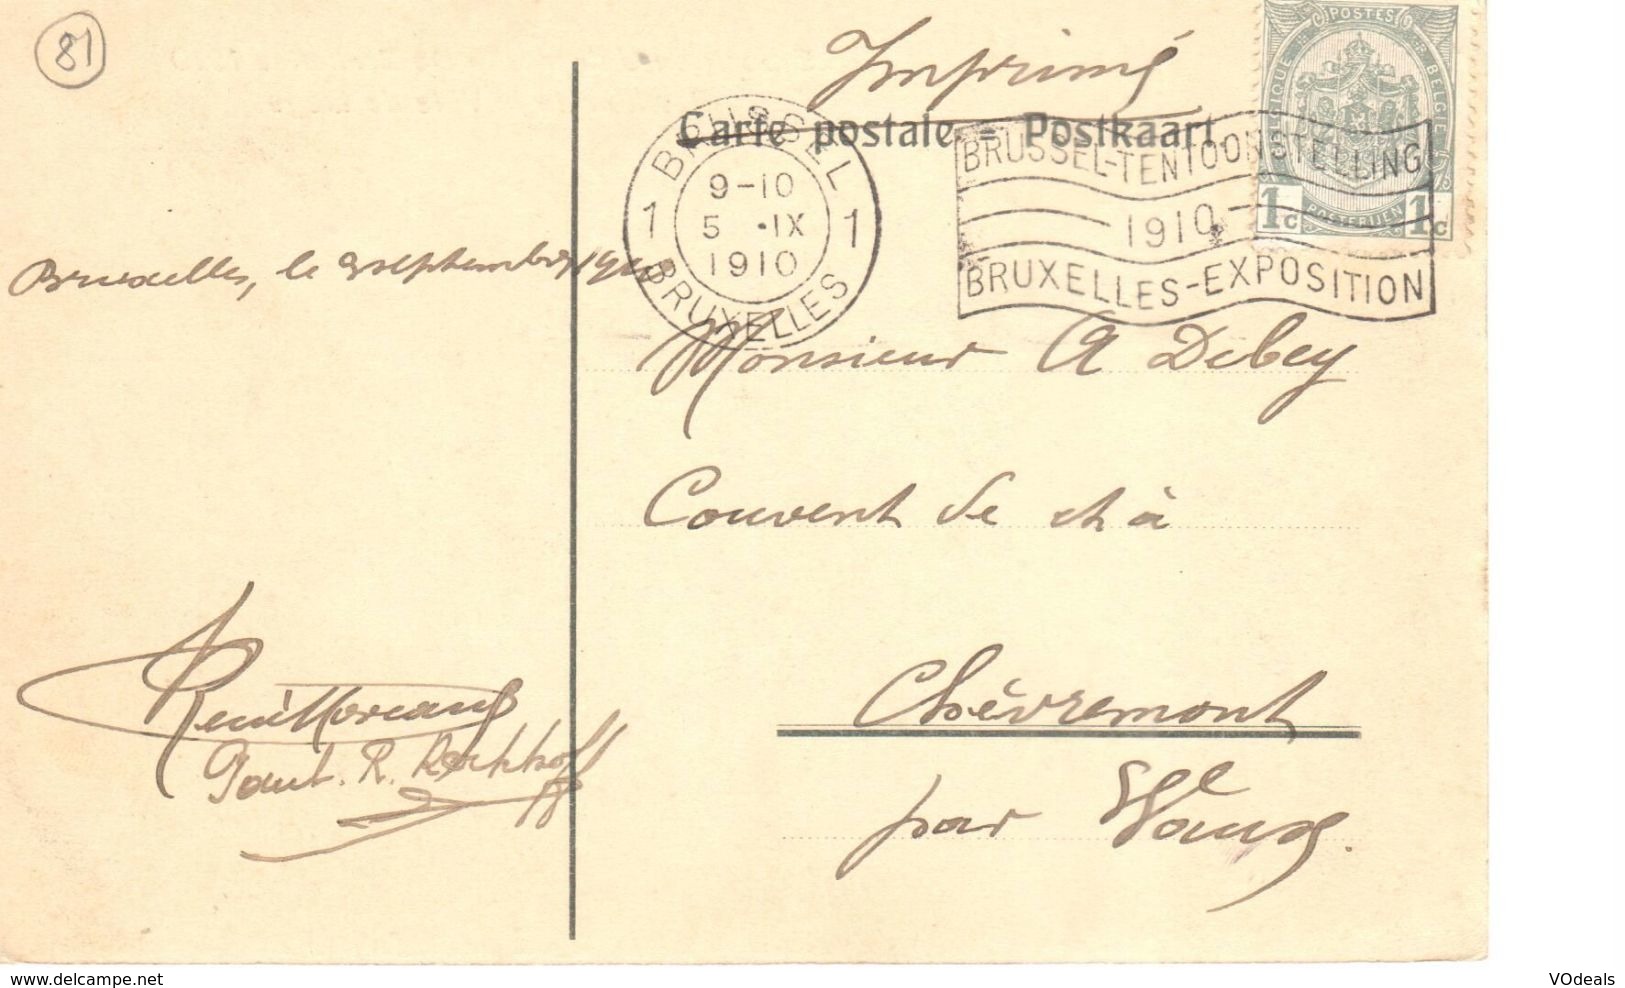 81
Imprimé
Carte postale = Postkaart.
POSTES
BELGIQUE BELGIE
POSTERIJEN
1c 1c
BRUSSEL
1 1
9-10
5 ·IX
1910
BRUXELLES
BRUSSEL-TENTOONSTELLING
1910
BRUXELLES-EXPOSITION
Bruxelles, le septembre
Monsieur A Debey
Couvent de ch à
Chèvremont
par Vaux.
R. Kerkhoff
www.delcampe.net
VOdeals